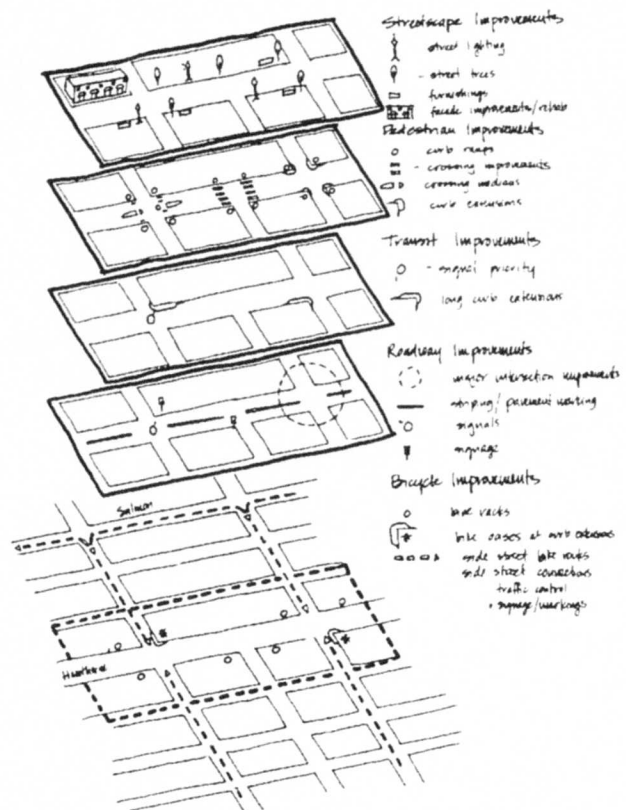 Streetscape Improvements
street lighting
- street trees
furnishings
facade improvements/rehab
Pedestrian Improvements
curb ramps
- crossing improvements
crossing medians
curb extensions
Transit Improvements
- signal priority
long curb extensions
Roadway Improvements
major intersection improvements
striping/pavement marking
signals
signage
Bicycle Improvements
bike racks
bike oases at curb extensions
side street bike routes
side street connections
traffic control
• signage/markings
Salmon
Hawthorne